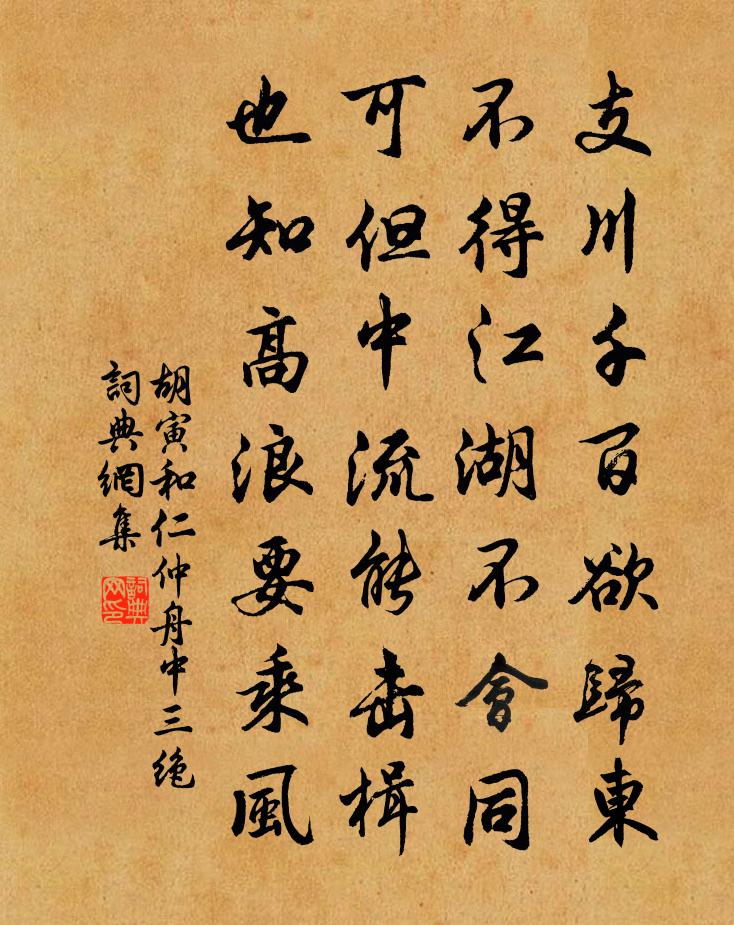 支川千百欲歸東
不得江湖不會同
可但中流能击楫
也知高浪要乘風
胡寅和仁仲舟中三绝
詞典網集
詞典
网印